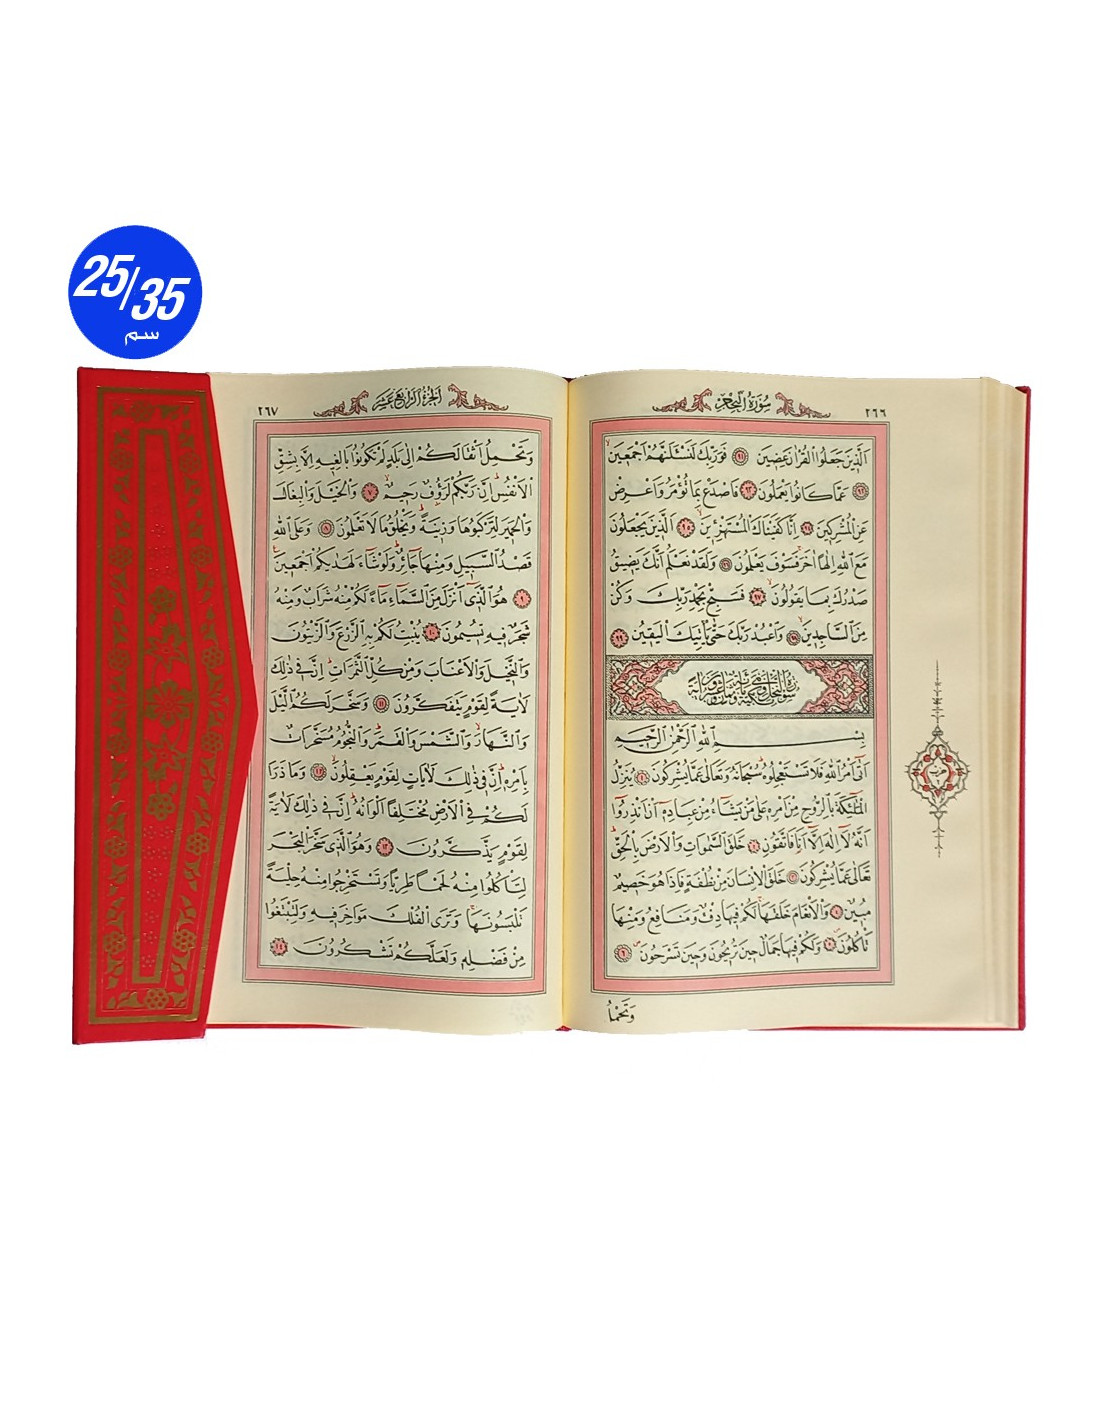 25/35
سم
٢٦٦
سُورَةُ الْحِجْرِ
اَلَّذِينَ جَعَلُوا الْقُرْاٰنَ عِضِينَ ﴿٩١﴾ فَوَرَبِّكَ لَنَسْـَٔلَنَّهُمْ اَجْمَعِينَ
﴿٩٢﴾ عَمَّا كَانُوا يَعْمَلُونَ ﴿٩٣﴾ فَاصْدَعْ بِمَا تُؤْمَرُ وَاَعْرِضْ
عَنِ الْمُشْرِكِينَ ﴿٩٤﴾ اِنَّا كَفَيْنَاكَ الْمُسْتَهْزِئِينَ ﴿٩٥﴾ اَلَّذِينَ يَجْعَلُونَ
مَعَ اللّٰهِ اِلٰهًا اٰخَرَ فَسَوْفَ يَعْلَمُونَ ﴿٩٦﴾ وَلَقَدْ نَعْلَمُ اَنَّكَ يَضِيقُ
صَدْرُكَ بِمَا يَقُولُونَ ﴿٩٧﴾ فَسَبِّحْ بِحَمْدِ رَبِّكَ وَكُنْ
مِنَ السَّاجِدِينَ ﴿٩٨﴾ وَاعْبُدْ رَبَّكَ حَتّٰى يَأْتِيَكَ الْيَقِينُ ﴿٩٩﴾
سورة النحل مكية وهى مائة وثمان وعشرون اية
بِسْمِ اللّٰهِ الرَّحْمٰنِ الرَّحِيمِ
اَتٰى اَمْرُ اللّٰهِ فَلَا تَسْتَعْجِلُوهُ سُبْحَانَهُ وَتَعَالٰى عَمَّا يُشْرِكُونَ ﴿١﴾ يُنَزِّلُ
الْمَلٰٓئِكَةَ بِالرُّوحِ مِنْ اَمْرِهِ عَلٰى مَنْ يَشَاءُ مِنْ عِبَادِهِ اَنْ اَنْذِرُوا
اَنَّهُ لَا اِلٰهَ اِلَّا اَنَا فَاتَّقُونِ ﴿٢﴾ خَلَقَ السَّمٰوَاتِ وَالْاَرْضَ بِالْحَقِّ
تَعَالٰى عَمَّا يُشْرِكُونَ ﴿٣﴾ خَلَقَ الْاِنْسَانَ مِنْ نُطْفَةٍ فَاِذَا هُوَ خَصِيمٌ
مُبِينٌ ﴿٤﴾ وَالْاَنْعَامَ خَلَقَهَا لَكُمْ فِيهَا دِفْءٌ وَمَنَافِعُ وَمِنْهَا
تَأْكُلُونَ ﴿٥﴾ وَلَكُمْ فِيهَا جَمَالٌ حِينَ تُرِيحُونَ وَحِينَ تَسْرَحُونَ ﴿٦﴾
وَتَحْمِلُ
حزب
٢٦٧
اَلْجُزْءُ الرَّابِعَ عَشَرَ
وَتَحْمِلُ اَثْقَالَكُمْ اِلٰى بَلَدٍ لَمْ تَكُونُوا بَالِغِيهِ اِلَّا بِشِقِّ
الْاَنْفُسِ اِنَّ رَبَّكُمْ لَرَؤُفٌ رَحِيمٌ ﴿٧﴾ وَالْخَيْلَ وَالْبِغَالَ
وَالْحَمِيرَ لِتَرْكَبُوهَا وَزِينَةً وَيَخْلُقُ مَا لَا تَعْلَمُونَ ﴿٨﴾ وَعَلَى اللّٰهِ
قَصْدُ السَّبِيلِ وَمِنْهَا جَائِرٌ وَلَوْ شَاءَ لَهَدٰيكُمْ اَجْمَعِينَ
﴿٩﴾ هُوَ الَّذِى اَنْزَلَ مِنَ السَّمَاءِ مَاءً لَكُمْ مِنْهُ شَرَابٌ وَمِنْهُ
شَجَرٌ فِيهِ تُسِيمُونَ ﴿١٠﴾ يُنْبِتُ لَكُمْ بِهِ الزَّرْعَ وَالزَّيْتُونَ
وَالنَّخِيلَ وَالْاَعْنَابَ وَمِنْ كُلِّ الثَّمَرَاتِ اِنَّ فِى ذٰلِكَ
لَاٰيَةً لِقَوْمٍ يَتَفَكَّرُونَ ﴿١١﴾ وَسَخَّرَ لَكُمُ الَّيْلَ
وَالنَّهَارَ وَالشَّمْسَ وَالْقَمَرَ وَالنُّجُومُ مُسَخَّرَاتٌ
بِاَمْرِهِ اِنَّ فِى ذٰلِكَ لَاٰيَاتٍ لِقَوْمٍ يَعْقِلُونَ ﴿١٢﴾ وَمَا ذَرَاَ
لَكُمْ فِى الْاَرْضِ مُخْتَلِفًا اَلْوَانُهُ اِنَّ فِى ذٰلِكَ لَاٰيَةً
لِقَوْمٍ يَذَّكَّرُونَ ﴿١٣﴾ وَهُوَ الَّذِى سَخَّرَ الْبَحْرَ
لِتَأْكُلُوا مِنْهُ لَحْمًا طَرِيًّا وَتَسْتَخْرِجُوا مِنْهُ حِلْيَةً
تَلْبَسُونَهَا وَتَرَى الْفُلْكَ مَوَاخِرَ فِيهِ وَلِتَبْتَغُوا
مِنْ فَضْلِهِ وَلَعَلَّكُمْ تَشْكُرُونَ ﴿١٤﴾